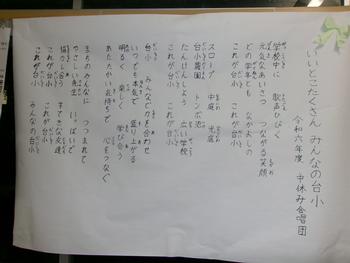 いいとこたくさん みんなの台小
令和六年度 中休み合唱団
学校中に 歌声ひびく
元気なあいさつ つながる笑顔
どの学年とも なかよしの
これが台小 これが台小
スロープ 中庭 光庭
台小農園 トンボ池
たんけんしよう 広い学校
これが台小 これが台小
台小 みんなで力を合わせ
いつでも本気で 盛り上がる
明るく 楽しく 学び合う
あたたかい気持ちで 心をつなぐ
まちのみんなに つつまれて
やさしい先生 いっぱいで
協力し合う すてきな友達
これが台小 みんなの台小
これが台小